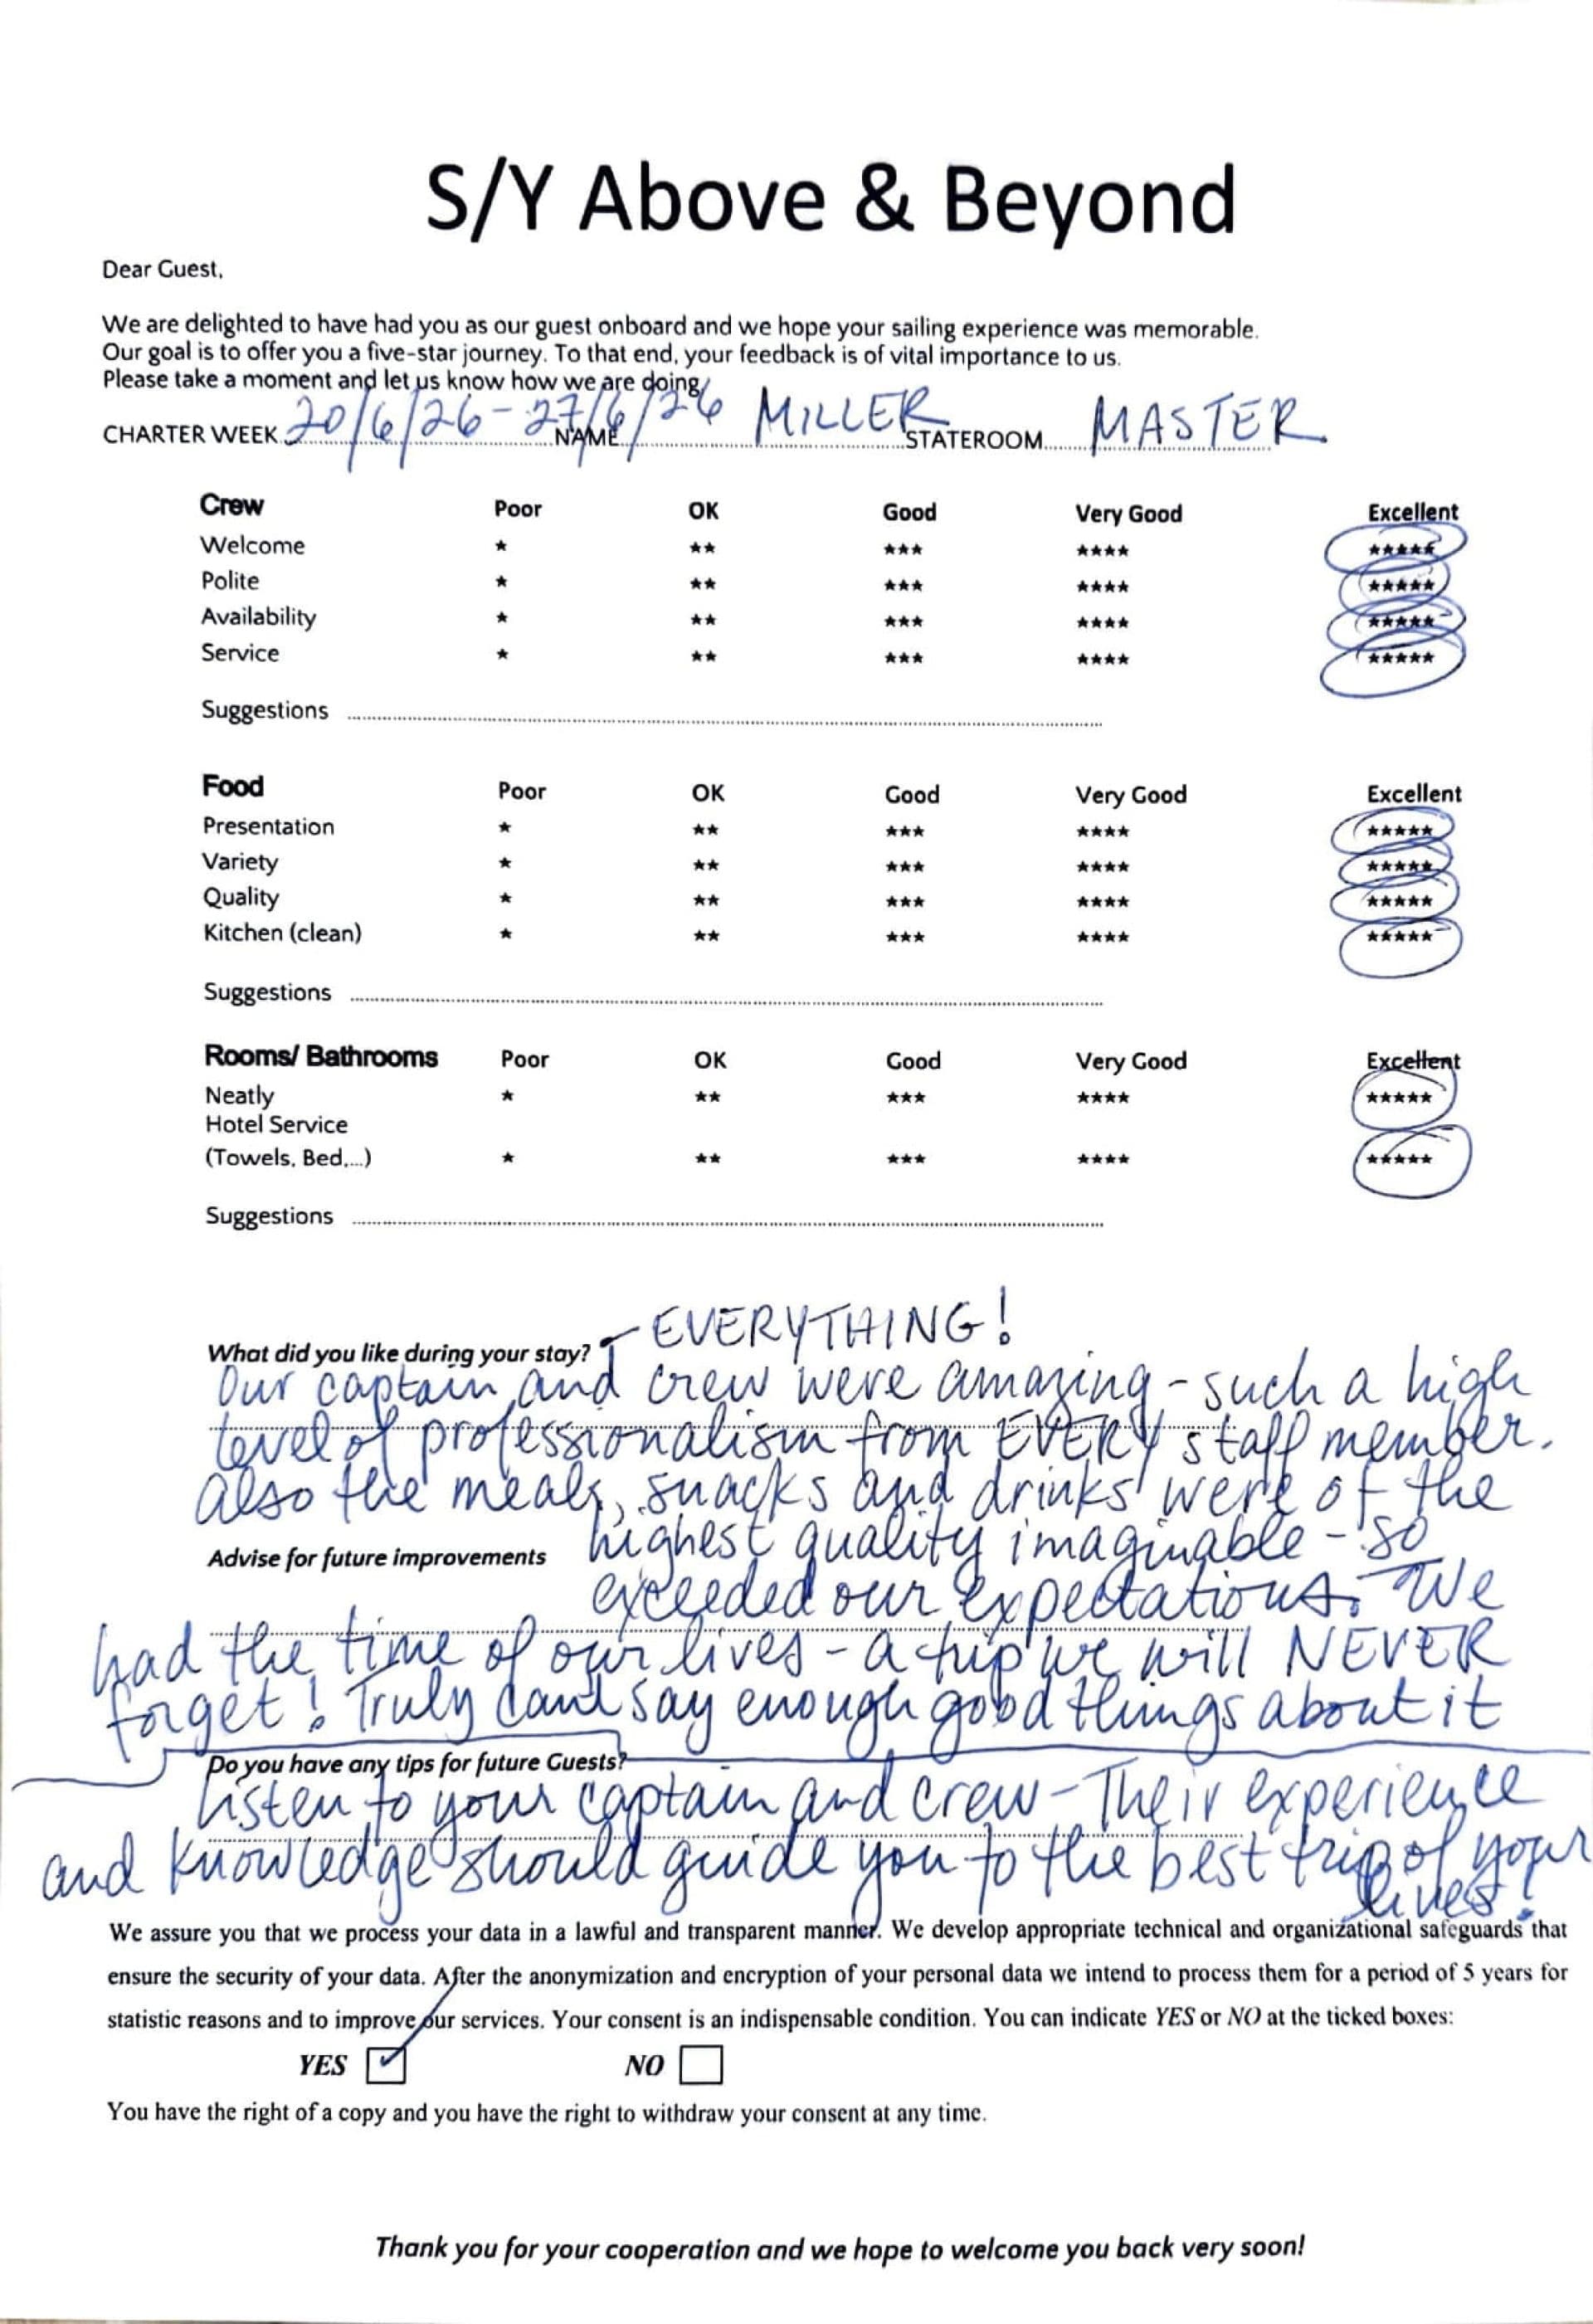 S/Y Above & Beyond
Dear Guest,
We are delighted to have had you as our guest onboard and we hope your sailing experience was memorable.
Our goal is to offer you a five-star journey. To that end, your feedback is of vital importance to us.
Please take a moment and let us know how we are doing.
CHARTER WEEK 20/6/26-27/6/26 NAME MILLER STATEROOM MASTER
Crew Poor OK Good Very Good Excellent
Welcome ★ ★★ ★★★ ★★★★ ★★★★★
Polite ★ ★★ ★★★ ★★★★ ★★★★★
Availability ★ ★★ ★★★ ★★★★ ★★★★★
Service ★ ★★ ★★★ ★★★★ ★★★★★
Suggestions
Food Poor OK Good Very Good Excellent
Presentation ★ ★★ ★★★ ★★★★ ★★★★★
Variety ★ ★★ ★★★ ★★★★ ★★★★★
Quality ★ ★★ ★★★ ★★★★ ★★★★★
Kitchen (clean) ★ ★★ ★★★ ★★★★ ★★★★★
Suggestions
Rooms/ Bathrooms Poor OK Good Very Good Excellent
Neatly ★ ★★ ★★★ ★★★★ ★★★★★
Hotel Service
(Towels, Bed,...) ★ ★★ ★★★ ★★★★ ★★★★★
Suggestions
What did you like during your stay? - EVERYTHING!
Our captain and crew were amazing - such a high
level of professionalism from EVERY staff member.
Also the meals, snacks and drinks were of the
Advise for future improvements highest quality imaginable - so
exceeded our expectations. We
had the time of our lives - a trip we will NEVER
forget! Truly can't say enough good things about it
Do you have any tips for future Guests?
Listen to your captain and crew - Their experience
and knowledge should guide you to the best trip of your
lives!
We assure you that we process your data in a lawful and transparent manner. We develop appropriate technical and organizational safeguards that
ensure the security of your data. After the anonymization and encryption of your personal data we intend to process them for a period of 5 years for
statistic reasons and to improve our services. Your consent is an indispensable condition. You can indicate YES or NO at the ticked boxes:
YES ✓ NO
You have the right of a copy and you have the right to withdraw your consent at any time.
Thank you for your cooperation and we hope to welcome you back very soon!